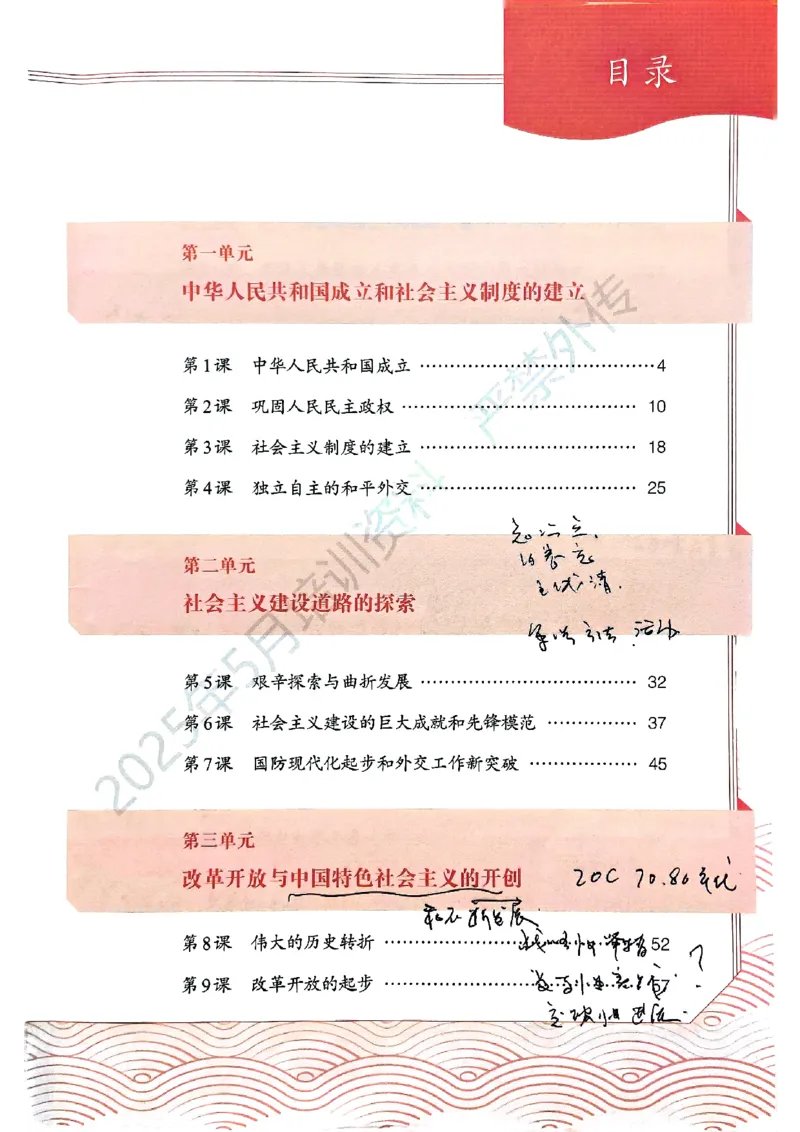 目录
第一单元
中华人民共和国成立和社会主义制度的建立
第1课 中华人民共和国成立 …………………………………… 4
第2课 巩固人民民主政权 …………………………………… 10
第3课 社会主义制度的建立 ………………………………… 18
第4课 独立自主的和平外交 ………………………………… 25
第二单元
社会主义建设道路的探索
第5课 艰辛探索与曲折发展 ………………………………… 32
第6课 社会主义建设的巨大成就和先锋模范 …………… 37
第7课 国防现代化起步和外交工作新突破 ……………… 45
第三单元
改革开放与中国特色社会主义的开创
20C 70.80年代
第8课 伟大的历史转折 …………………… 52
第9课 改革开放的起步 ……………………… 57
2025年5月培训资料 严禁外传